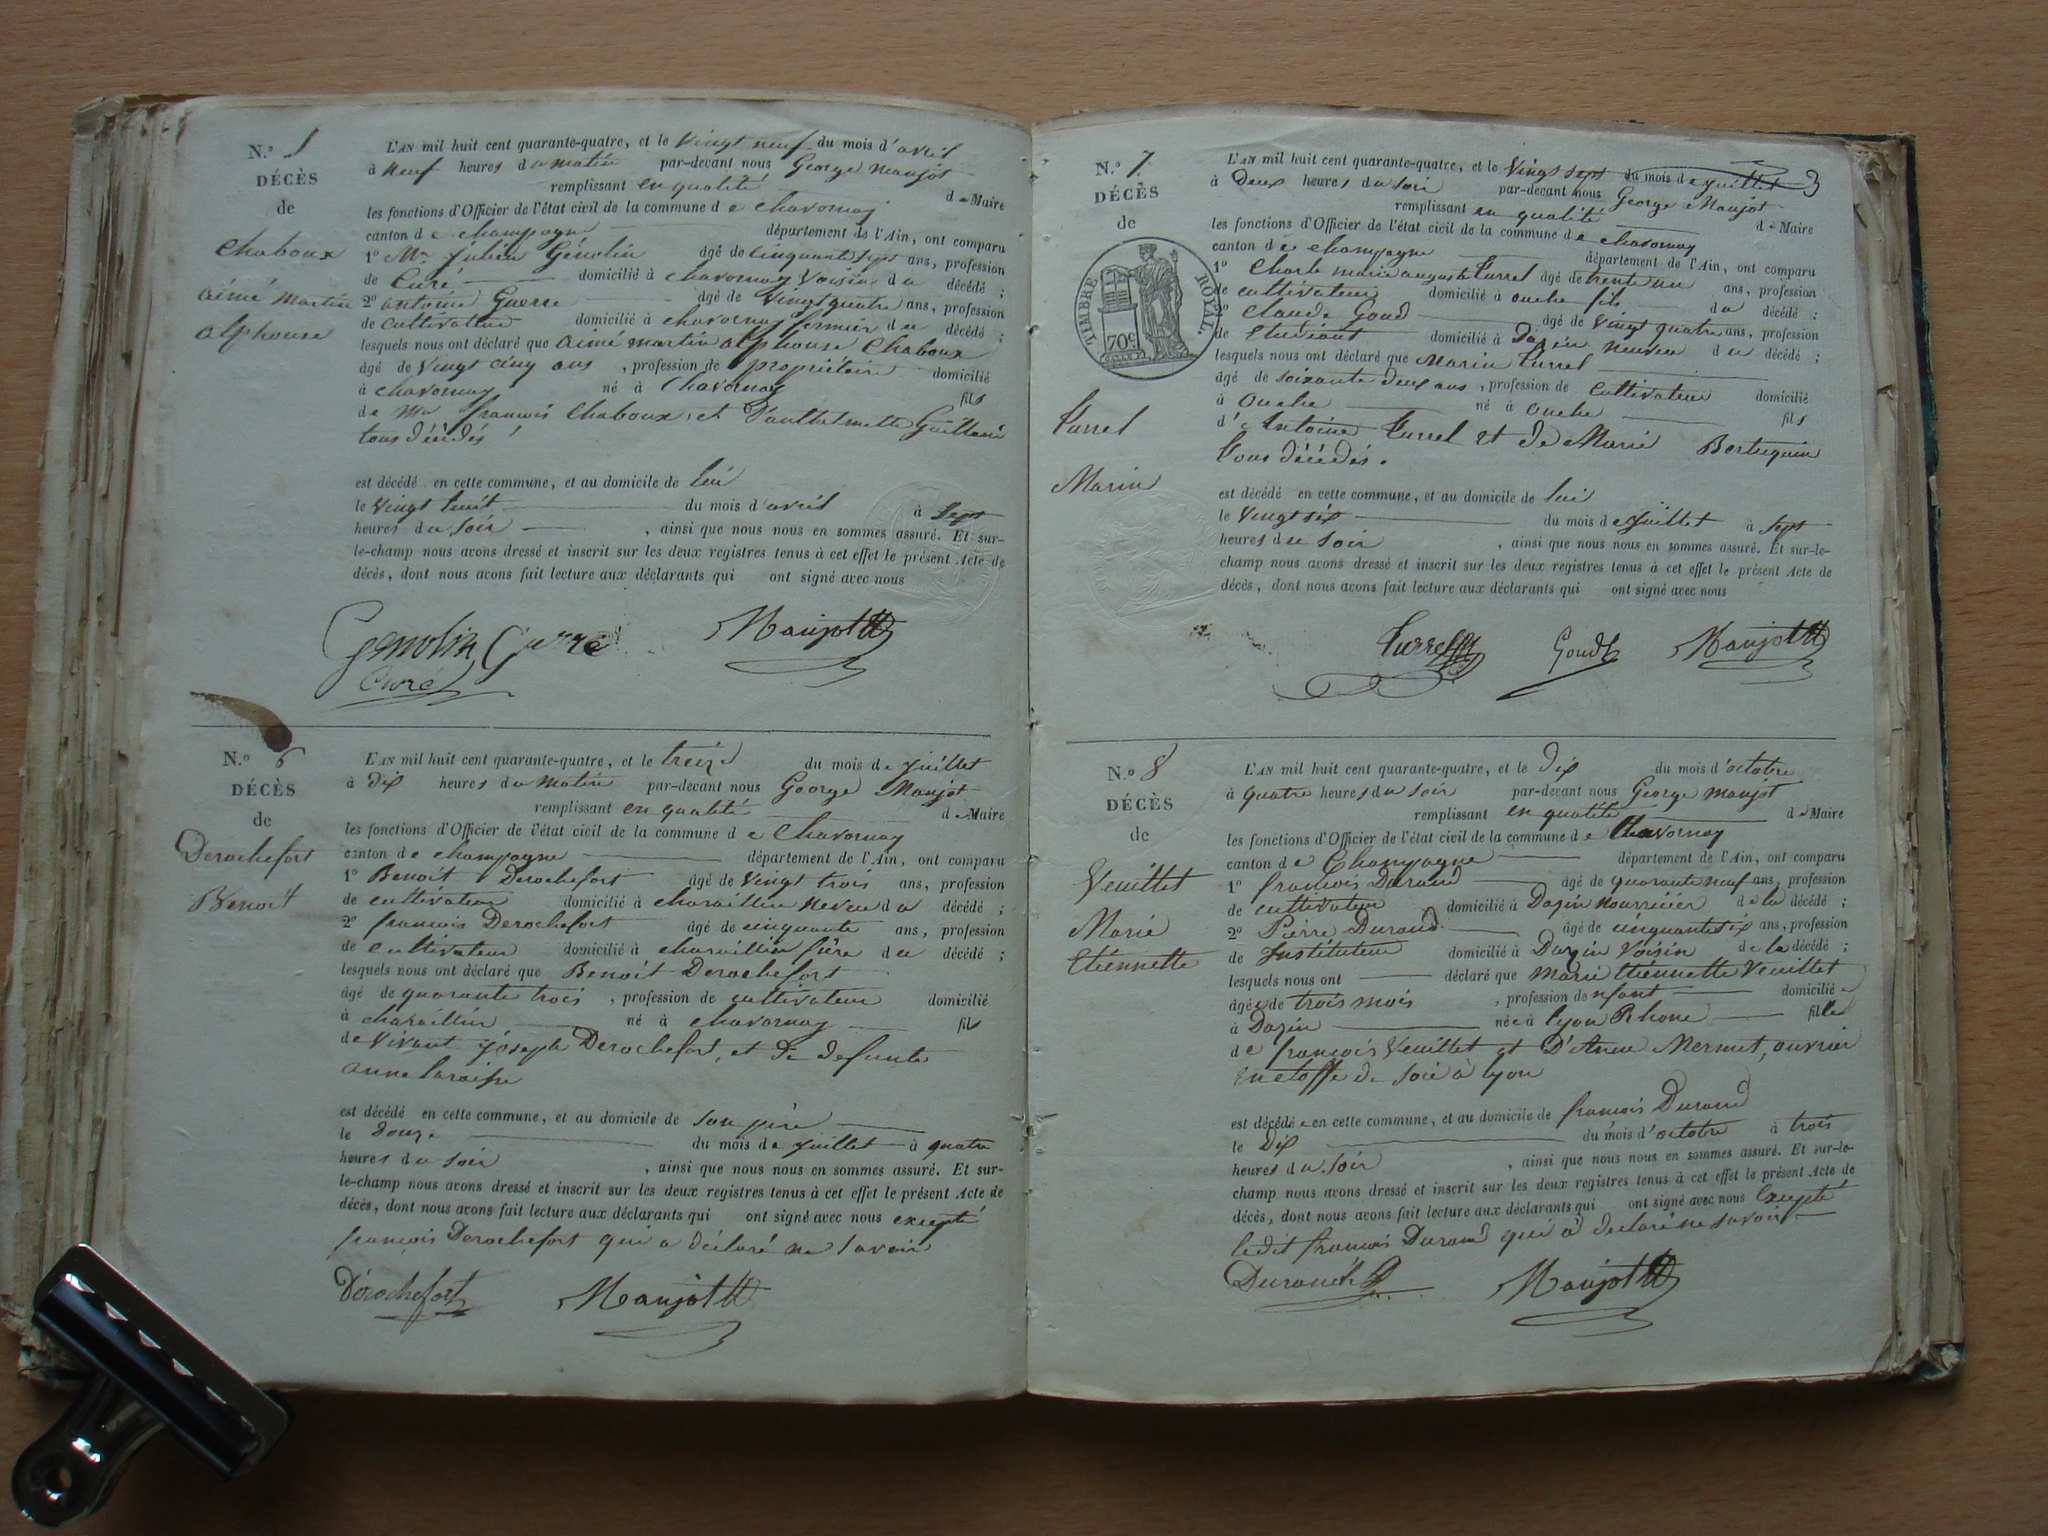 N.º 5
DÉCÈS
de
Chaboux
aimé martin
alphonse
L'AN mil huit cent quarante-quatre, et le Vingt neuf du mois d'avril
à neuf heures du matin par-devant nous George maujot
remplissant en qualité de Maire
les fonctions d'Officier de l'état civil de la commune de chavornay
canton de champagne département de l'Ain, ont comparu
1º Mr. julien Génolin âgé de cinquante sept ans, profession
de Curé domicilié à chavornay Voisin du décédé ;
2º antoine Guerre âgé de Vingt quatre ans, profession
de cultivateur domicilié à chavornay fermier du décédé ;
lesquels nous ont déclaré que aimé martin alphonse Chaboux
âgé de Vingt cinq ans, profession de propriétaire domicilié
à chavornay né à Chavornay fils
de Mr françois Chaboux, et
tous décédés
est décédé en cette commune, et au domicile de lui
le Vingt huit du mois d'avril à Sept
heures du Soir, ainsi que nous nous en sommes assuré. Et sur-
le-champ nous avons dressé et inscrit sur les deux registres tenus à cet effet le présent Acte de
décès, dont nous avons fait lecture aux déclarants qui ont signé avec nous
Genolin Guerre Maujot
Curé
N.º 6
DÉCÈS
de
Derochefort
Benoit
L'AN mil huit cent quarante-quatre, et le treize du mois de juillet
à dix heures du matin par-devant nous George Maujot
remplissant en qualité de Maire
les fonctions d'Officier de l'état civil de la commune de Chavornay
canton de champagne département de l'Ain, ont comparu
1º Benoit Derochefort âgé de Vingt trois ans, profession
de cultivateur domicilié à charaillin neveu du décédé ;
2º françois Derochefort âgé de cinquante ans, profession
de cultivateur domicilié à charaillin frère du décédé ;
lesquels nous ont déclaré que Benoit Derochefort
âgé de quarante trois, profession de cultivateur domicilié
à charaillin né à chavornay fils
de Vivant joseph Derochefort, et de defunte
anne
est décédé en cette commune, et au domicile de son père
le Douze du mois de juillet à quatre
heures du soir, ainsi que nous nous en sommes assuré. Et sur-
le-champ nous avons dressé et inscrit sur les deux registres tenus à cet effet le présent Acte de
décès, dont nous avons fait lecture aux déclarants qui ont signé avec nous excepté
françois Derochefort qui a déclaré ne savoir
Dérochefort Maujot
3
N.º 7
DÉCÈS
de
TIMBRE ROYAL
70c
turrel
Marin
L'AN mil huit cent quarante-quatre, et le Vingt sept du mois de juillet
à Deux heures du soir par-devant nous George Maujot
remplissant en qualité de Maire
les fonctions d'Officier de l'état civil de la commune de chavornay
canton de champagne département de l'Ain, ont comparu
1º Charle marie auguste turrel âgé de trente un ans, profession
de cultivateur domicilié à ouche fils du décédé ;
2º Claude Goud âgé de Vingt quatre ans, profession
de Etudiant domicilié à Dazin neuveu du décédé ;
lesquels nous ont déclaré que Marin turrel
âgé de soixante deux ans, profession de cultivateur domicilié
à ouche né à ouche fils
d'Antoine turrel et de Marie
tous décédés.
est décédé en cette commune, et au domicile de lui
le Vingt six du mois de juillet à sept
heures du soir, ainsi que nous nous en sommes assuré. Et sur-le-
champ nous avons dressé et inscrit sur les deux registres tenus à cet effet le présent Acte de
décès, dont nous avons fait lecture aux déclarants qui ont signé avec nous
turrel Goud Maujot
N.º 8
DÉCÈS
de
Veuillet
Marie
Etiennette
L'AN mil huit cent quarante-quatre, et le dix du mois d'octobre
à quatre heures du soir par-devant nous George maujot
remplissant en qualité de Maire
les fonctions d'Officier de l'état civil de la commune de Chavornay
canton de Champagne département de l'Ain, ont comparu
1º françois Durand âgé de quarante neuf ans, profession
de cultivateur domicilié à Dazin nourricier de la décédé ;
2º Pierre Durand âgé de cinquante six ans, profession
de Instituteur domicilié à Dazin Voisin de la décédé ;
lesquels nous ont déclaré que marie Etiennette Veuillet
âgée de trois mois, profession denfant domicilié e
à Dazin née à lyon Rhone fille
de françois Veuillet et D'Anne Mermet, ouvrier
en etoffe de soie à lyon
est décédée en cette commune, et au domicile de françois Durand
le Dix du mois d'octobre à trois
heures du soir, ainsi que nous nous en sommes assuré. Et sur-le-
champ nous avons dressé et inscrit sur les deux registres tenus à cet effet le présent Acte de
décès, dont nous avons fait lecture aux déclarants qui ont signé avec nous Excepté
ledit françois Durand qui à declaré ne savoir
Durand Maujot